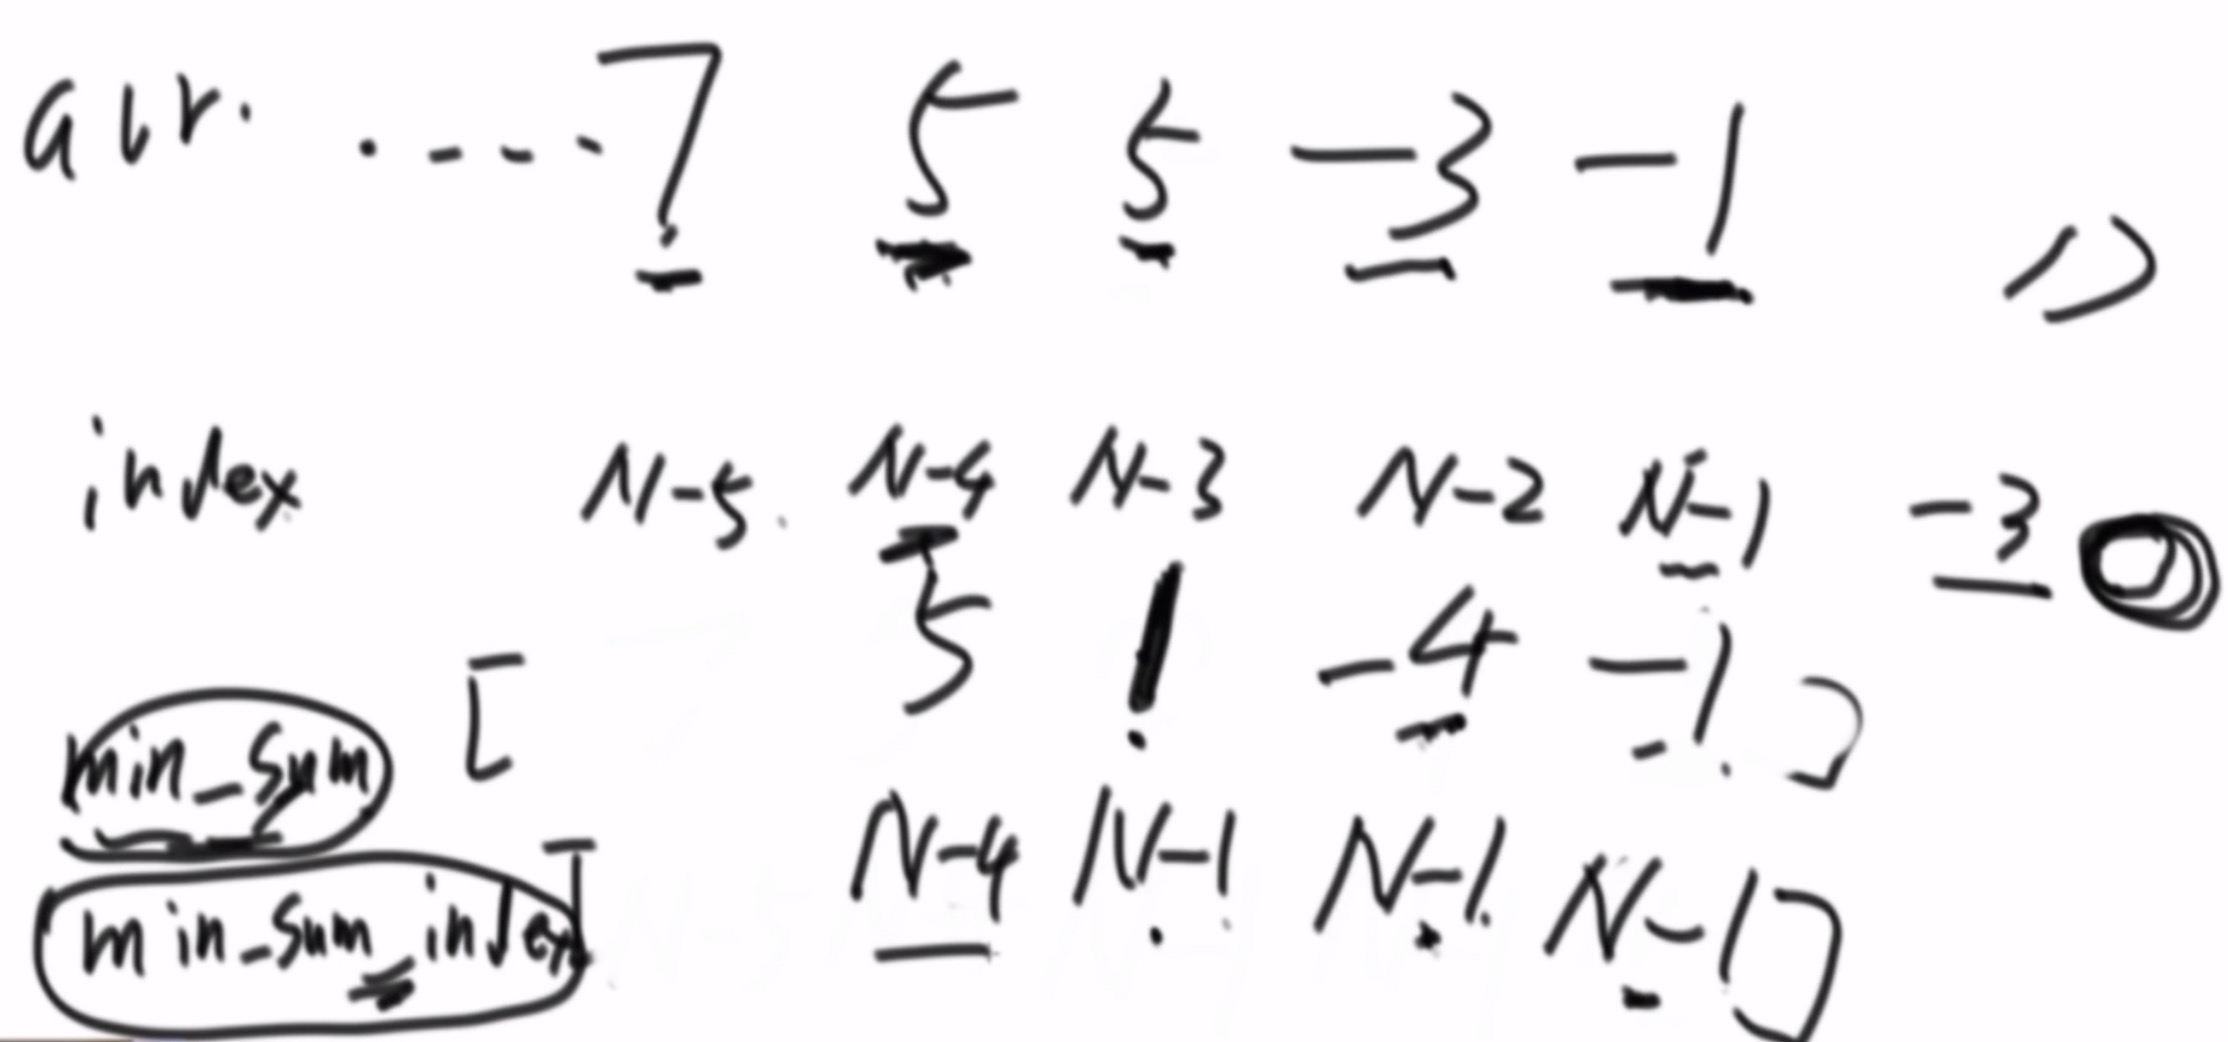 arr. .... 7 5 5 -3 -1
index N-5 N-4 N-3 N-2 N-1 -3
min_sum [ 5 1 -4 -1 ]
min_sum_index [ N-4 N-1 N-1 N-1 ]